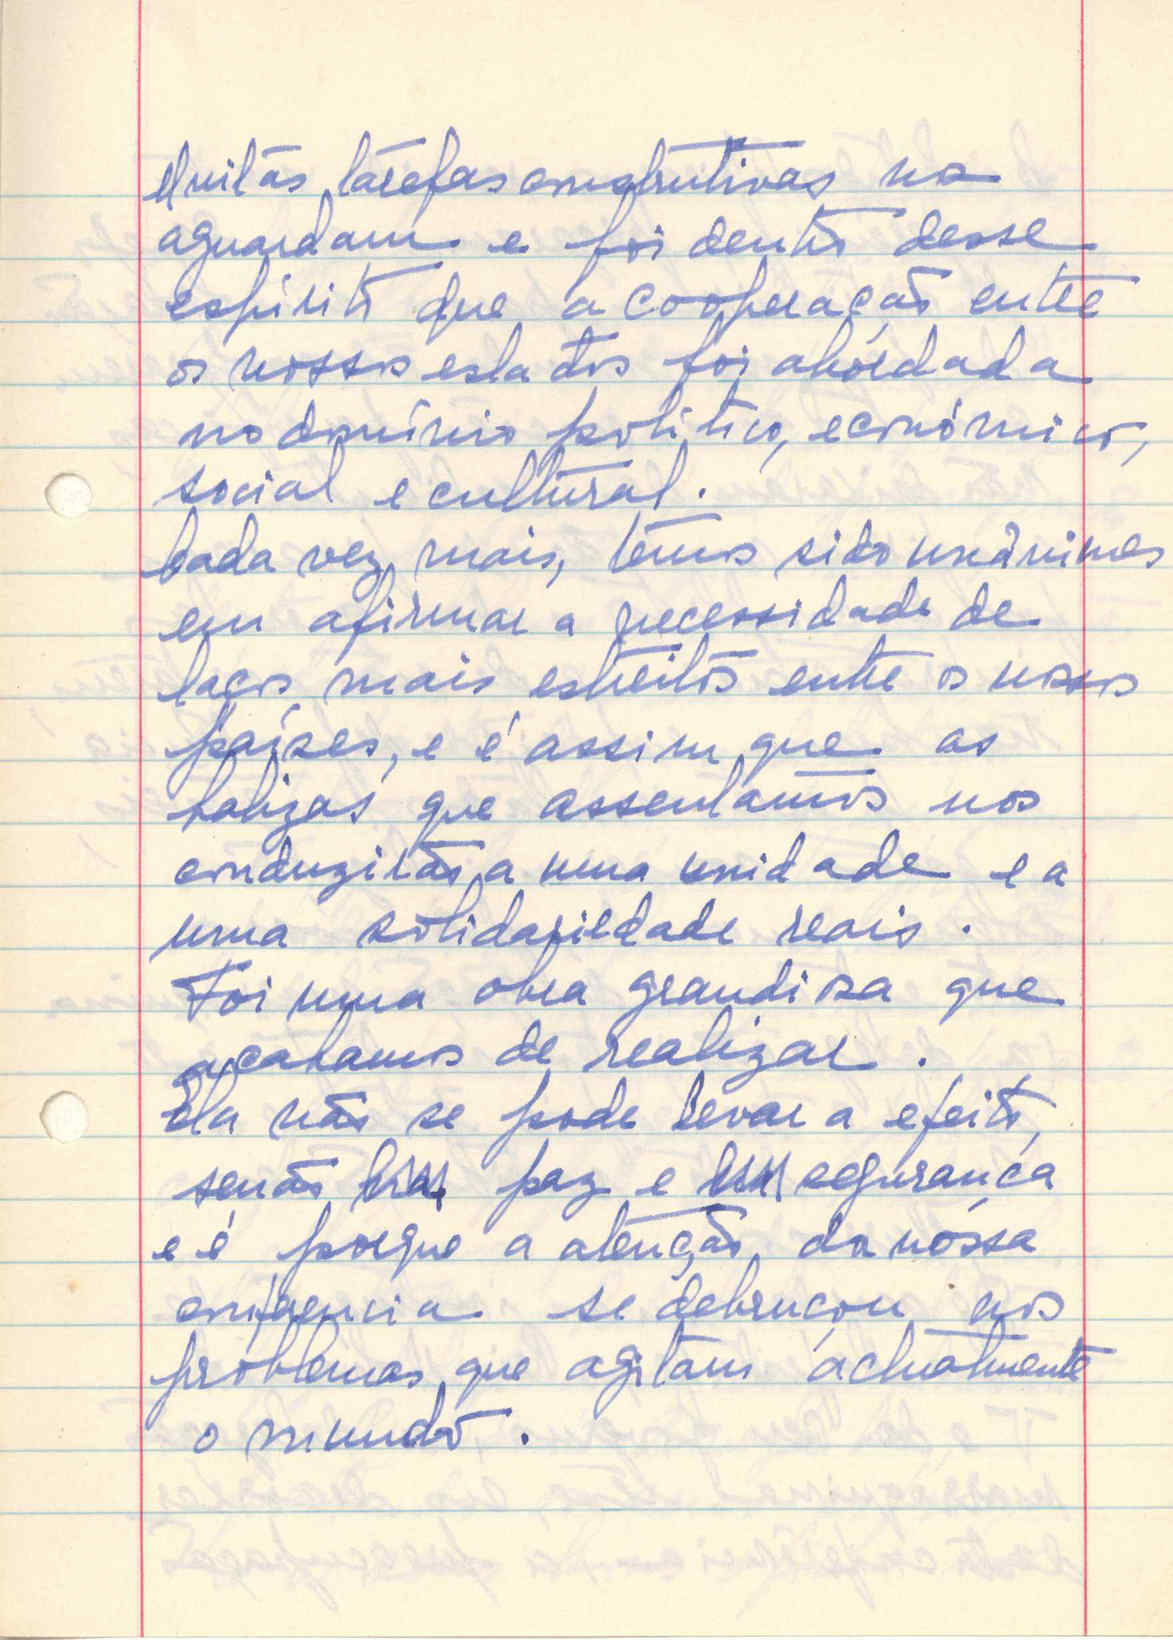 Muitas tarefas construtivas nos
aguardam e foi dentro desse
espírito que a cooperação entre
os nossos estados foi abordada
no domínio político, económico,
social e cultural.
Cada vez mais, temos sido unânimes
em afirmar a necessidade de
laços mais estreitos entre os nossos
países, e é assim que as
balizas que assentamos nos
conduzirão a uma unidade e a
uma solidariedade reais.
Foi uma obra grandiosa que
acabamos de realizar.
Ela não se pode levar a efeito,
senão paz e segurança
e é porque a atenção da nossa
conferencia se debruçou nos
problemas que agitam actualmente
o mundo.